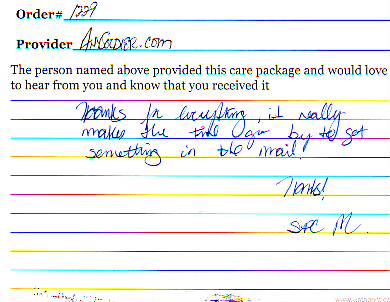 Order# 1229
Provider AnySoldier.com
The person named above provided this care package and would love
to hear from you and know that you received it
Thanks for everything, it really
makes the time go by to get
something in the mail!
Thanks!
SPC M.